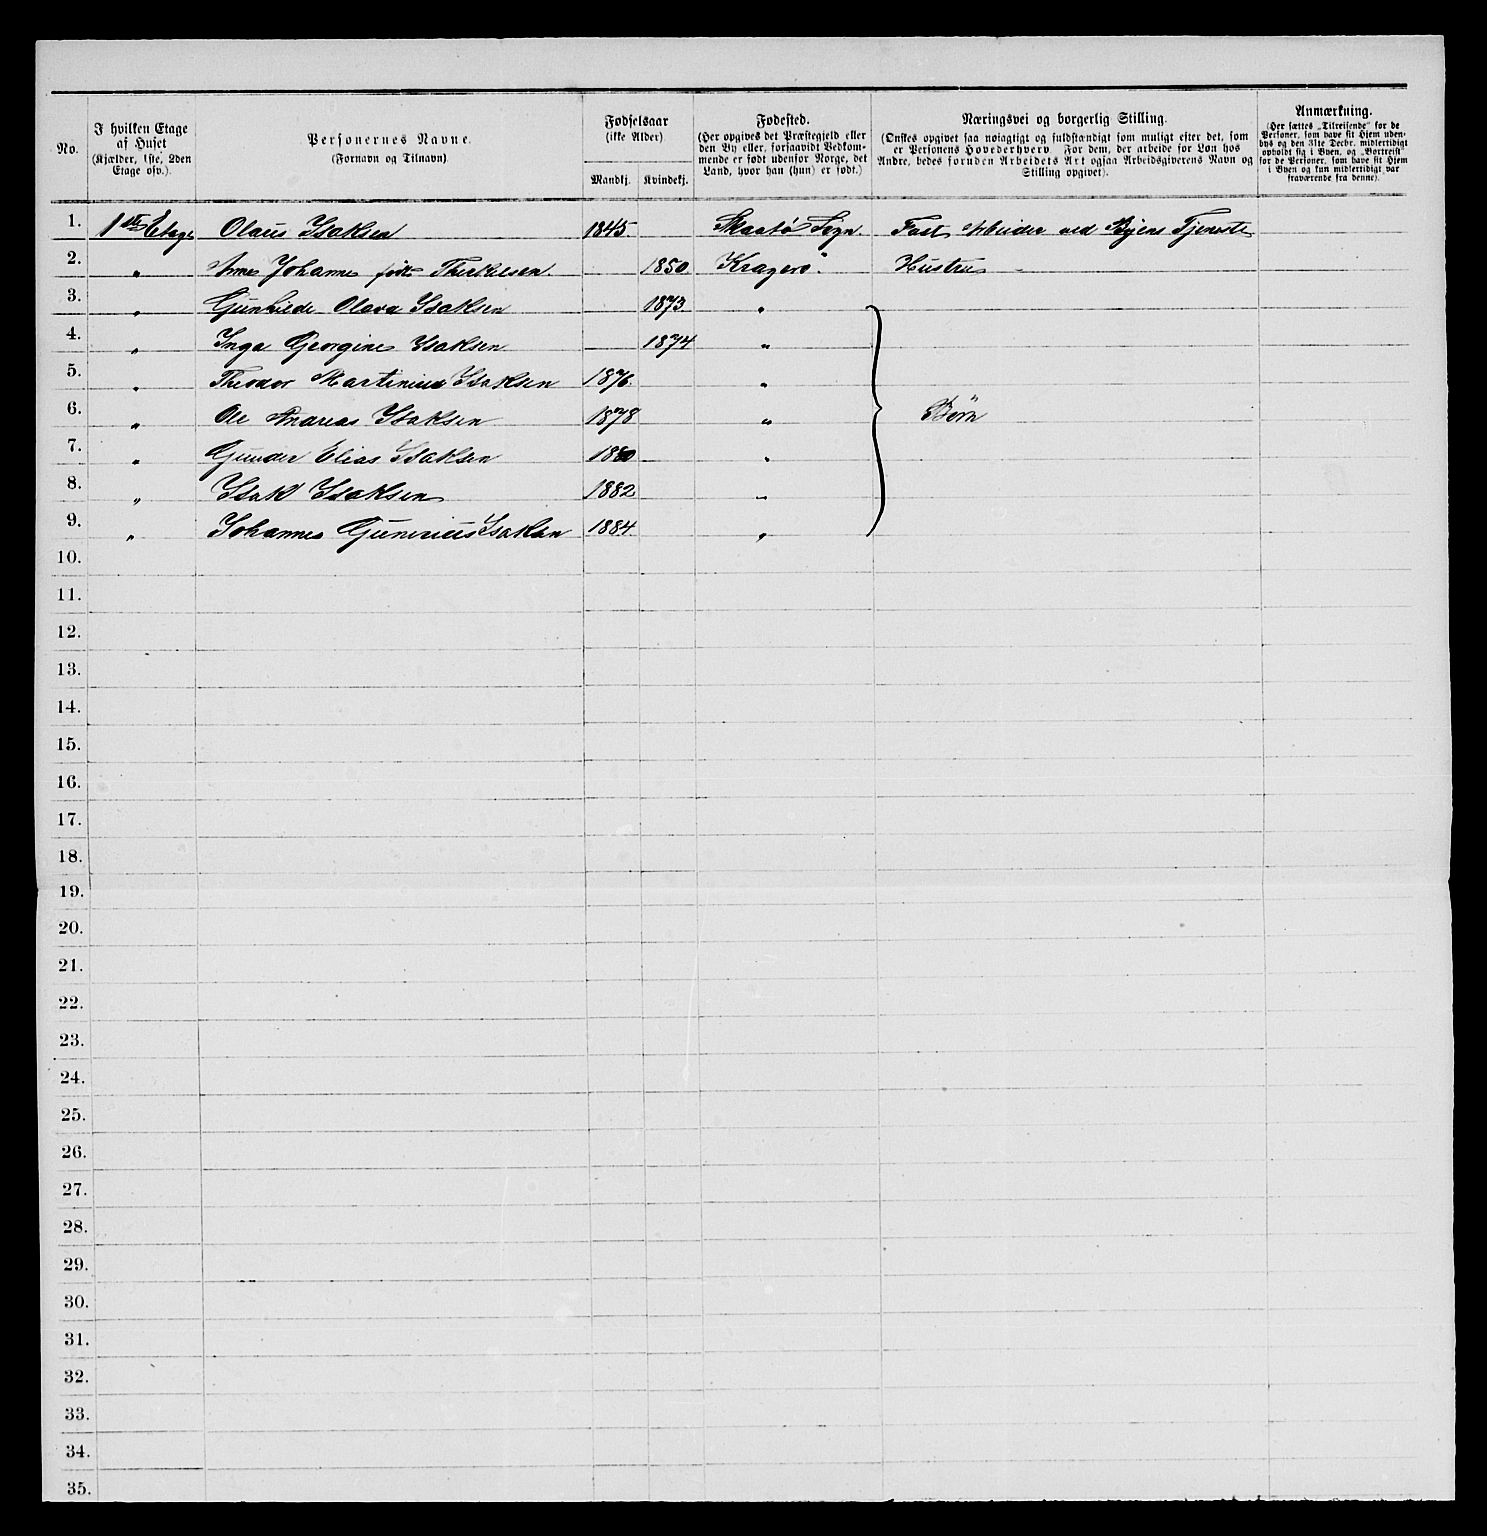 No.
I hvilken Etage af Huset (Kjælder, 1ste, 2den Etage osv.).
Personernes Navne. (Fornavn og Tilnavn).
Fødselsaar (ikke Alder)
Mandkj. Kvindekj.
Fødested. (Her opgives det Præstegjeld eller den By eller, forsaavidt Vedkommende er født udenfor Norge, det Land, hvor han (hun) er født.)
Næringsvei og borgerlig Stilling. (Ønskes opgivet saa nøiagtigt og fuldstændigt som muligt efter det, som er Personens Hovederhverv. For dem, der arbeide for Løn hos Andre, bedes foruden Arbeidets Art ogsaa Arbeidsgiverens Navn og Stilling opgivet).
Anmærkning. (Her sættes „Tilreisende“ for de Personer, som have sit Hjem udenbys og den 31te Decbr. midlertidigt opholdt sig i Byen, og „Bortreist“ for de Personer, som have sit Hjem i Byen og kun midlertidigt var fraværende fra denne).
1. 1ste Etage Olaus Isaksen 1845 Skaatø Sogn. Fast Arbeider ved Byens Tjeneste
2. " Anne Johanne født Therkilsen. 1850 Kragerø. Hustru
3. " Gunhilde Olava Isaksen 1873 "
4. " Inga Georgine Isaksen 1874 "
5. " Theodor Martinius Isaksen 1876. "
6. " Ole Andreas Isaksen 1878 " Børn
7. " Gunder Elias Isaksen 1880 "
8. " Isak Isaksen 1882 "
9. " Johannes Gunerius Isaksen 1884. "
10.
11.
12.
13.
14.
15.
16.
17.
18.
19.
20.
21.
22.
23.
24.
25.
26.
27.
28.
29.
30.
31.
32.
33.
34.
35.